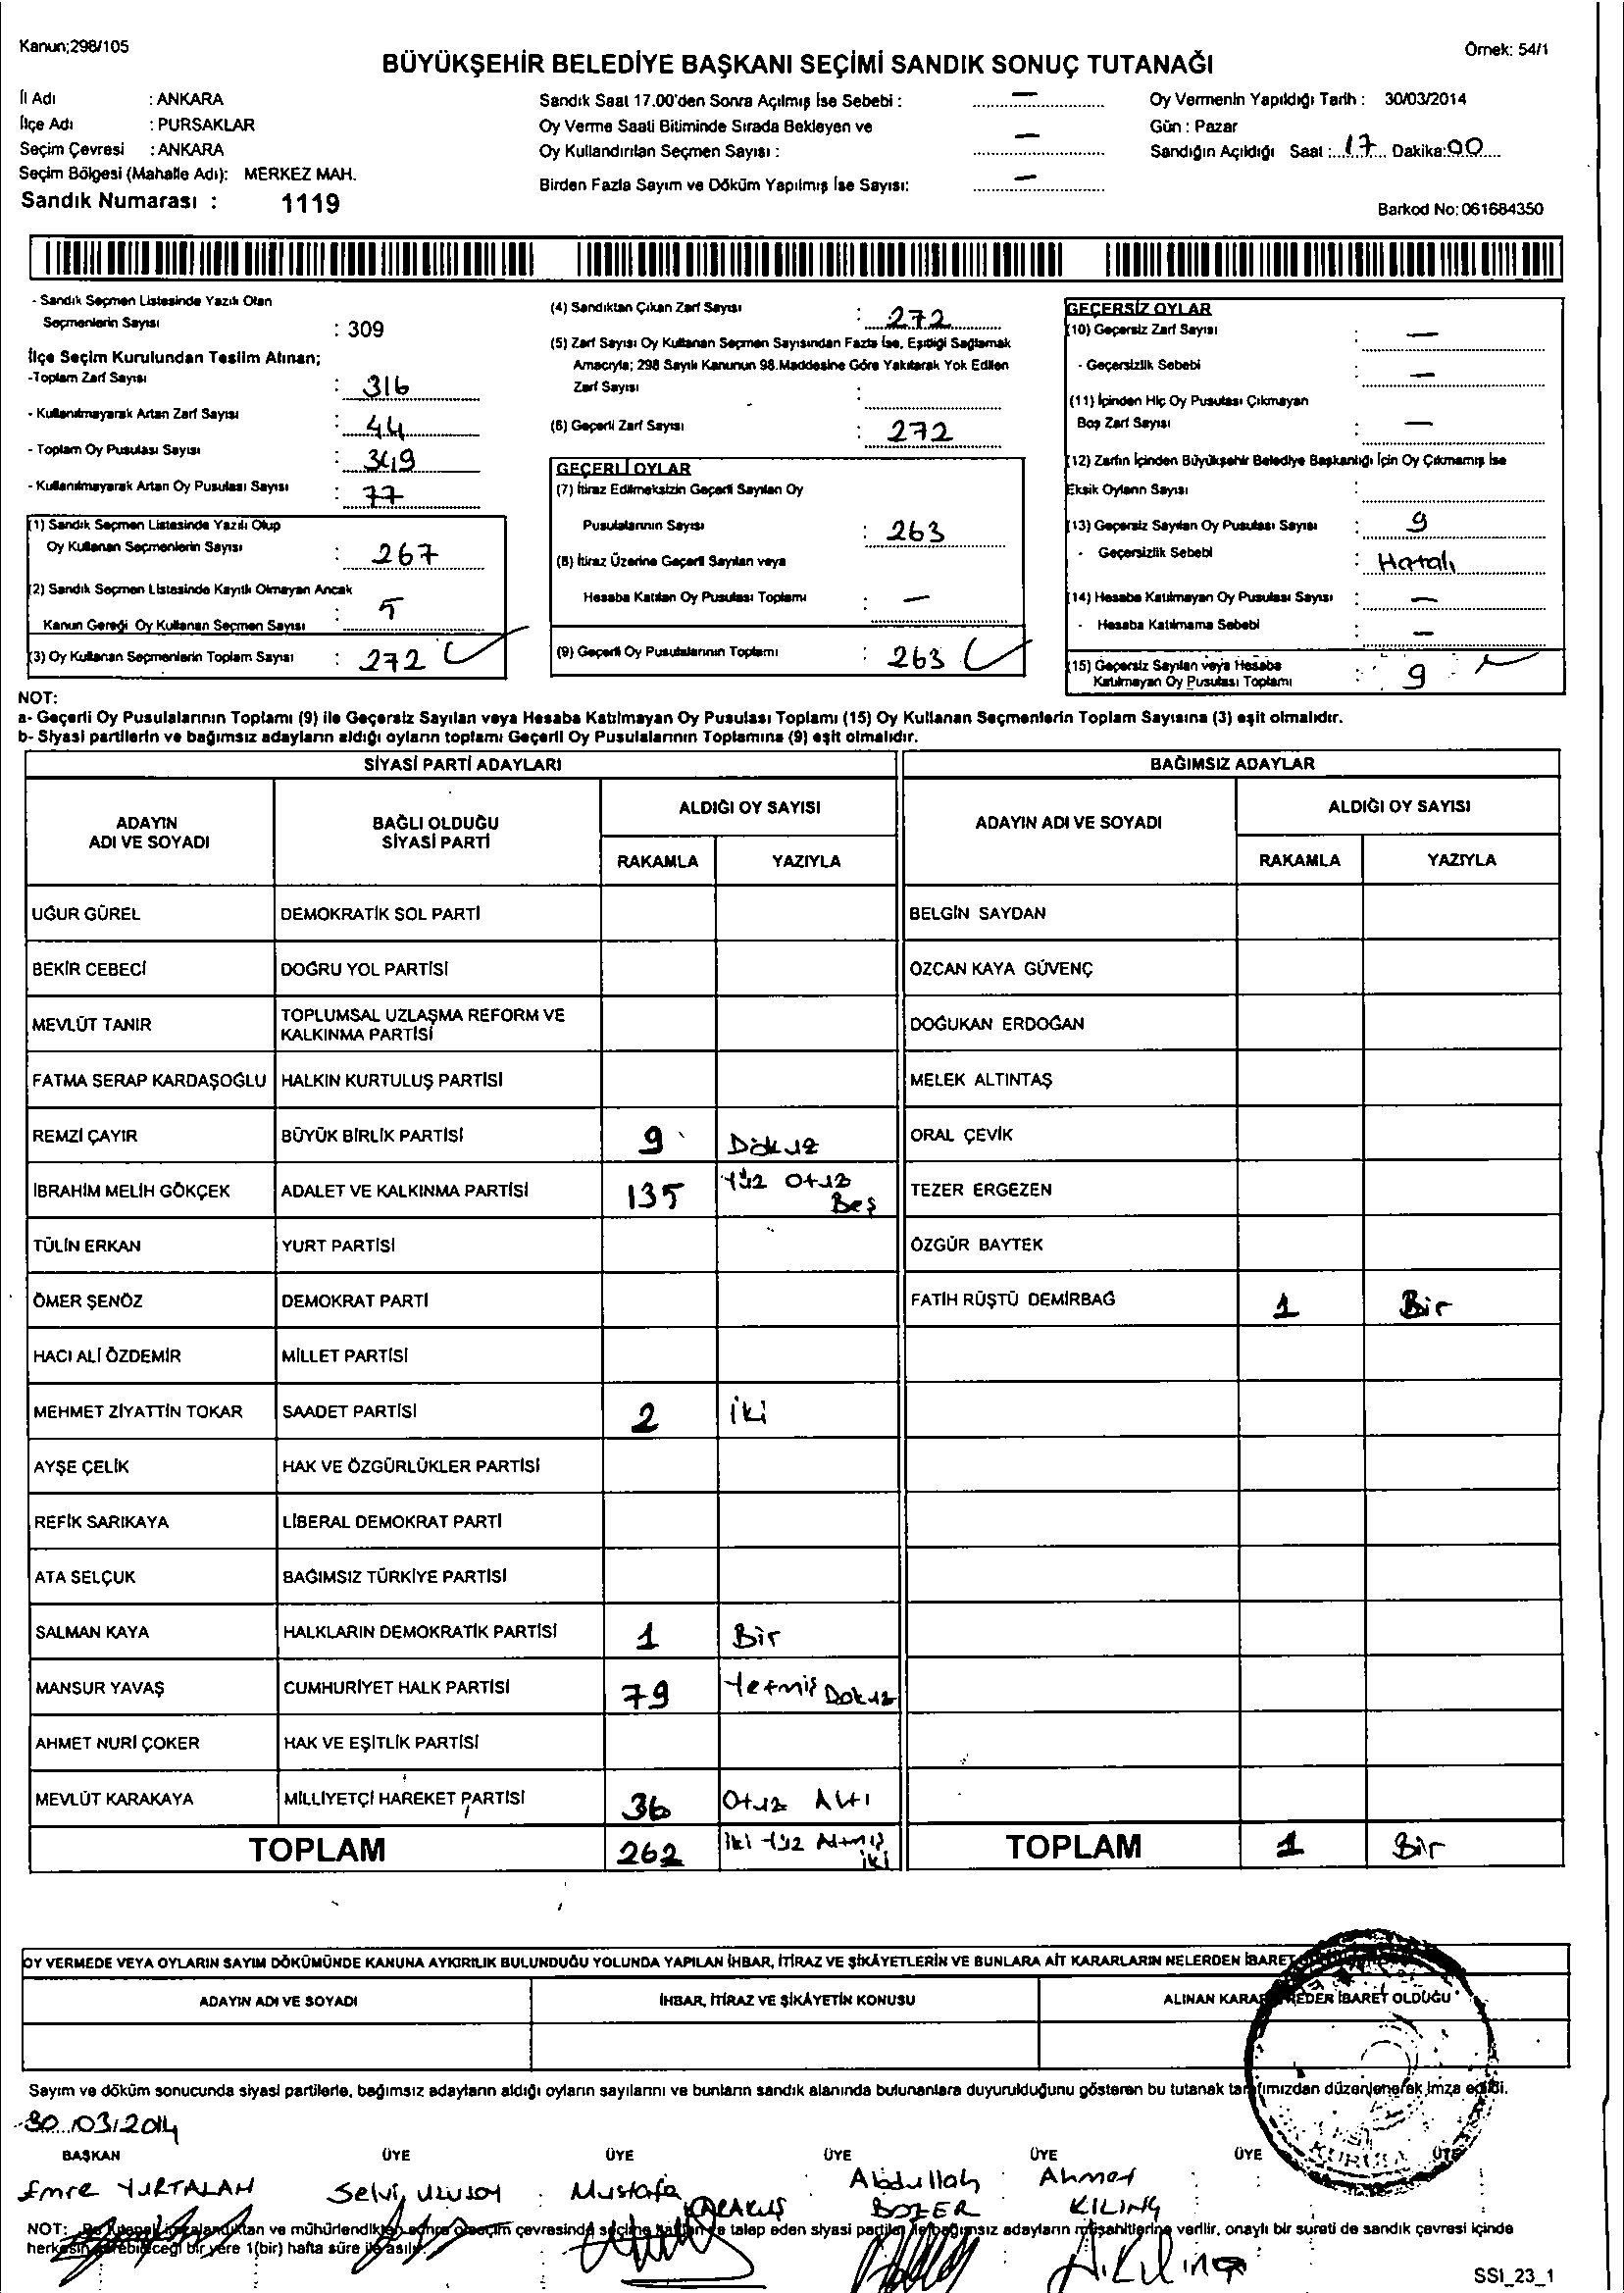 Kanun;298/105
Örnek: 54/1
BÜYÜKŞEHİR BELEDİYE BAŞKANI SEÇİMİ SANDIK SONUÇ TUTANAĞI
İl Adı : ANKARA
İlçe Adı : PURSAKLAR
Seçim Çevresi : ANKARA
Seçim Bölgesi (Mahalle Adı): MERKEZ MAH.
Sandık Numarası : 1119
Sandık Saat 17.00'den Sonra Açılmış İse Sebebi : —
Oy Verme Saati Bitiminde Sırada Bekleyen ve
Oy Kullandırılan Seçmen Sayısı : —
Birden Fazla Sayım ve Döküm Yapılmış İse Sayısı: —
Oy Vermenin Yapıldığı Tarih : 30/03/2014
Gün : Pazar
Sandığın Açıldığı Saat : 17 Dakika: 00
Barkod No: 061684350
- Sandık Seçmen Listesinde Yazılı Olan
Seçmenlerin Sayısı : 309
İlçe Seçim Kurulundan Teslim Alınan;
-Toplam Zarf Sayısı : 316
- Kullanılmayarak Artan Zarf Sayısı : 44
- Toplam Oy Pusulası Sayısı : 349
- Kullanılmayarak Artan Oy Pusulası Sayısı : 77
(1) Sandık Seçmen Listesinde Yazılı Olup
Oy Kullanan Seçmenlerin Sayısı : 267
(2) Sandık Seçmen Listesinde Kayıtlı Olmayan Ancak
Kanun Gereği Oy Kullanan Seçmen Sayısı : 5
(3) Oy Kullanan Seçmenlerin Toplam Sayısı : 272
(4) Sandıktan Çıkan Zarf Sayısı : 272
(5) Zarf Sayısı Oy Kullanan Seçmen Sayısından Fazla İse, Eşitliği Sağlamak
Amacıyla; 298 Sayılı Kanunun 98.Maddesine Göre Yakılarak Yok Edilen
Zarf Sayısı :
(6) Geçerli Zarf Sayısı : 272
GEÇERLİ OYLAR
(7) İtiraz Edilmeksizin Geçerli Sayılan Oy
Pusulalarının Sayısı : 263
(8) İtiraz Üzerine Geçerli Sayılan veya
Hesaba Katılan Oy Pusulası Toplamı : —
(9) Geçerli Oy Pusulalarının Toplamı : 263
GEÇERSİZ OYLAR
(10) Geçersiz Zarf Sayısı : —
- Geçersizlik Sebebi : —
(11) İçinden Hiç Oy Pusulası Çıkmayan
Boş Zarf Sayısı : —
(12) Zarfın İçinden Büyükşehir Belediye Başkanlığı İçin Oy Çıkmamış İse
Eksik Oyların Sayısı :
(13) Geçersiz Sayılan Oy Pusulası Sayısı : 9
- Geçersizlik Sebebi : Hatalı
(14) Hesaba Katılmayan Oy Pusulası Sayısı : —
- Hesaba Katılmama Sebebi : —
(15) Geçersiz Sayılan veya Hesaba
Katılmayan Oy Pusulası Toplamı : 9
NOT:
a- Geçerli Oy Pusulalarının Toplamı (9) ile Geçersiz Sayılan veya Hesaba Katılmayan Oy Pusulası Toplamı (15) Oy Kullanan Seçmenlerin Toplam Sayısına (3) eşit olmalıdır.
b- Siyasi partilerin ve bağımsız adayların aldığı oyların toplamı Geçerli Oy Pusulalarının Toplamına (9) eşit olmalıdır.
SİYASİ PARTİ ADAYLARI
ADAYIN ADI VE SOYADI BAĞLI OLDUĞU SİYASİ PARTİ ALDIĞI OY SAYISI
RAKAMLA YAZIYLA
UĞUR GÜREL DEMOKRATİK SOL PARTİ
BEKİR CEBECİ DOĞRU YOL PARTİSİ
MEVLÜT TANIR TOPLUMSAL UZLAŞMA REFORM VE KALKINMA PARTİSİ
FATMA SERAP KARDAŞOĞLU HALKIN KURTULUŞ PARTİSİ
REMZİ ÇAYIR BÜYÜK BİRLİK PARTİSİ 9 Dokuz
İBRAHİM MELİH GÖKÇEK ADALET VE KALKINMA PARTİSİ 135 Yüz Otuz Beş
TÜLİN ERKAN YURT PARTİSİ
ÖMER ŞENÖZ DEMOKRAT PARTİ
HACI ALİ ÖZDEMİR MİLLET PARTİSİ
MEHMET ZİYATTİN TOKAR SAADET PARTİSİ 2 İki
AYŞE ÇELİK HAK VE ÖZGÜRLÜKLER PARTİSİ
REFİK SARIKAYA LİBERAL DEMOKRAT PARTİ
ATA SELÇUK BAĞIMSIZ TÜRKİYE PARTİSİ
SALMAN KAYA HALKLARIN DEMOKRATİK PARTİSİ 1 Bir
MANSUR YAVAŞ CUMHURİYET HALK PARTİSİ 79 Yetmiş Dokuz
AHMET NURİ ÇOKER HAK VE EŞİTLİK PARTİSİ
MEVLÜT KARAKAYA MİLLİYETÇİ HAREKET PARTİSİ 36 Otuz Altı
TOPLAM 262 İki Yüz Altmış İki
BAĞIMSIZ ADAYLAR
ADAYIN ADI VE SOYADI ALDIĞI OY SAYISI
RAKAMLA YAZIYLA
BELGİN SAYDAN
ÖZCAN KAYA GÜVENÇ
DOĞUKAN ERDOĞAN
MELEK ALTINTAŞ
ORAL ÇEVİK
TEZER ERGEZEN
ÖZGÜR BAYTEK
FATİH RÜŞTÜ DEMİRBAĞ 1 Bir
TOPLAM 1 Bir
OY VERMEDE VEYA OYLARIN SAYIM DÖKÜMÜNDE KANUNA AYKIRILIK BULUNDUĞU YOLUNDA YAPILAN İHBAR, İTİRAZ VE ŞİKÂYETLERİN VE BUNLARA AİT KARARLARIN NELERDEN İBARET
ADAYIN ADI VE SOYADI İHBAR, İTİRAZ VE ŞİKÂYETİN KONUSU ALINAN İBARET OLDUĞU
Sayım ve döküm sonucunda siyasi partilerle, bağımsız adayların aldığı oyların sayılarını ve bunların sandık alanında bulunanlara duyurulduğunu gösteren bu tutanak tarafımızdan düzenlenerek imza edildi.
30/03/2014
BAŞKAN ÜYE ÜYE ÜYE ÜYE ÜYE ÜYE
Emre YURTALAN Selvi ULUSOY Mustafa KARAKUŞ Abdullah BOZER Ahmet KILINÇ
KURULU
A.Kılınç
NOT: Bu tutanak imzalandıktan ve mühürlendikten sonra o seçim çevresinde seçime katılan ve talep eden siyasi partiler ile bağımsız adayların müşahitlerine verilir, onaylı bir sureti de sandık çevresi içinde
herkesin görebileceği bir yere 1(bir) hafta süre ile asılır.
SSI_23_1